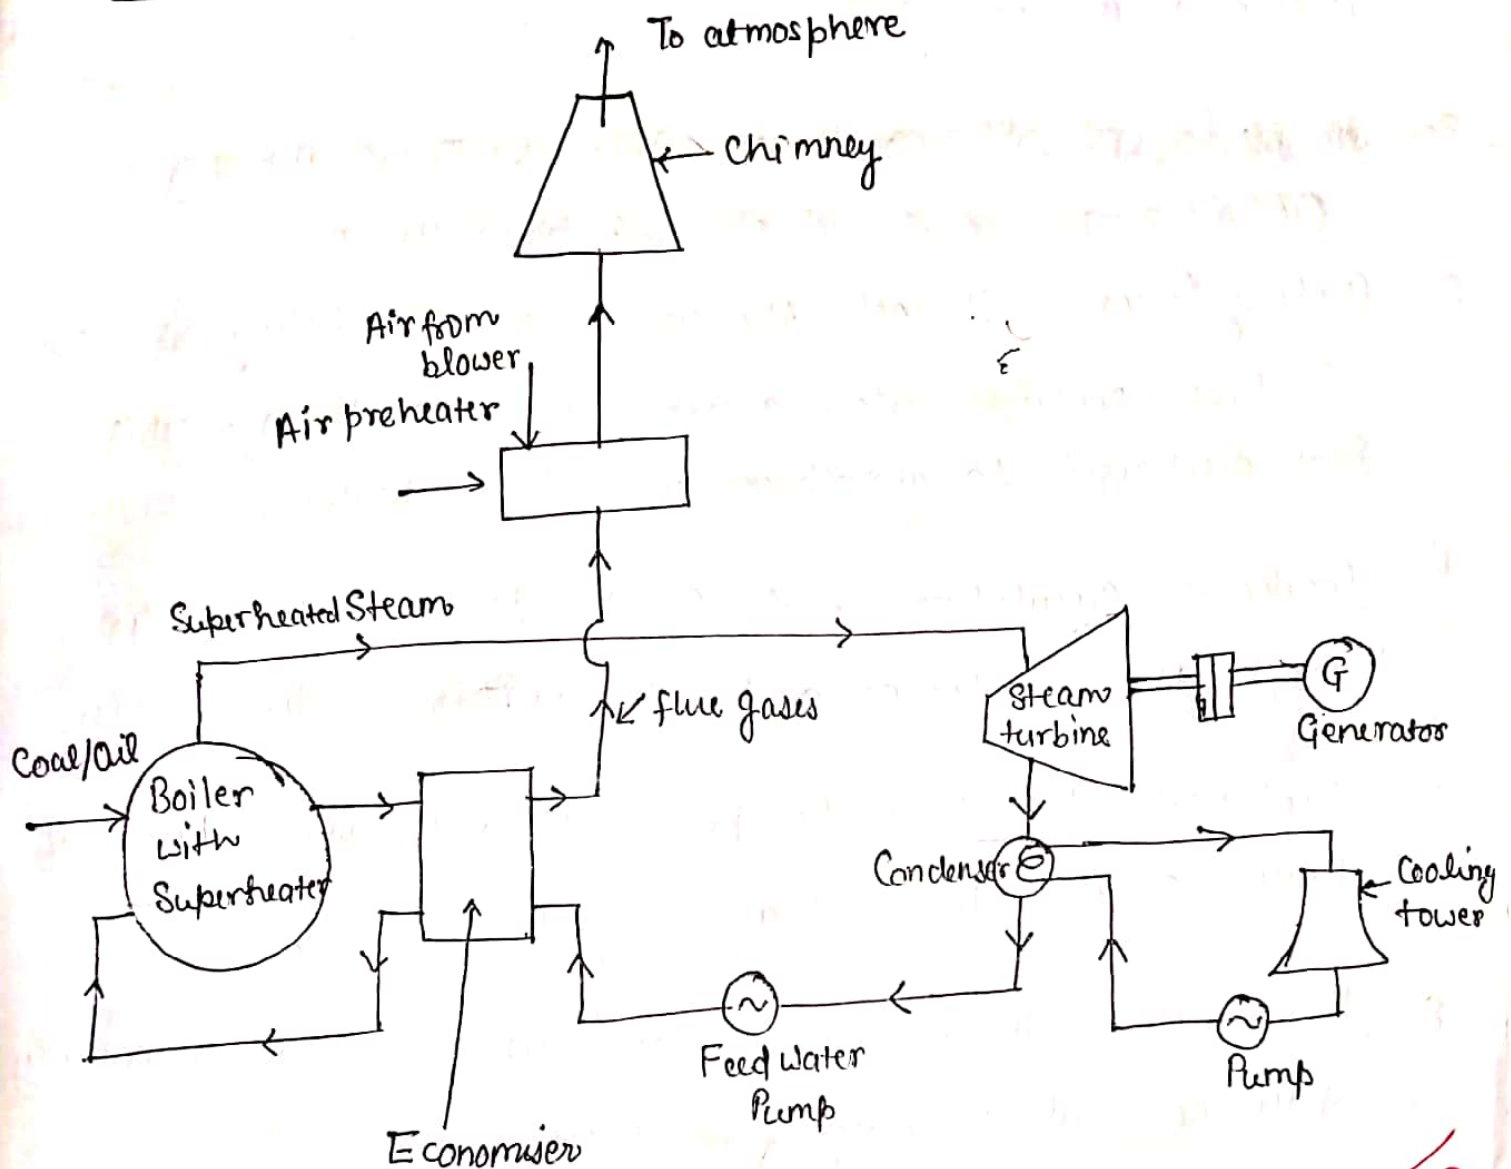 To atmosphere
Chimney
Air from
blower
Air preheater
Superheated Steam
flue gases
Steam
turbine
G
Generator
Coal/Oil
Boiler
with
Superheater
Condenser
Cooling
tower
Feed water
Pump
Pump
Economiser